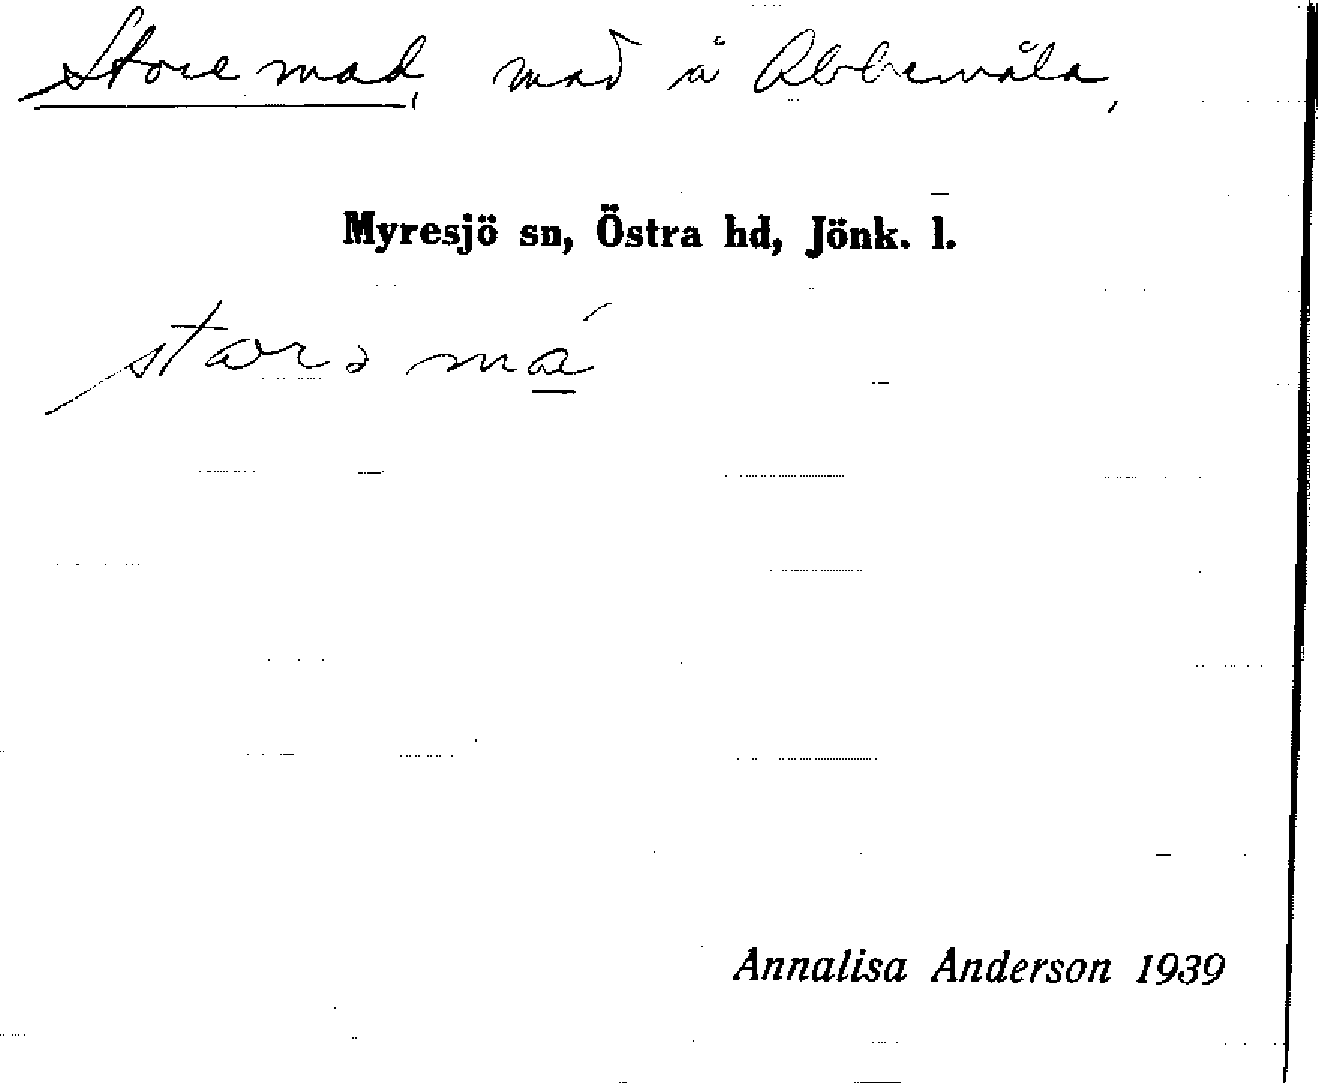 Store mad, mad å Abbemåla,
Myresjö sn, Östra hd, Jönk. l.
Annalisa Anderson 1939